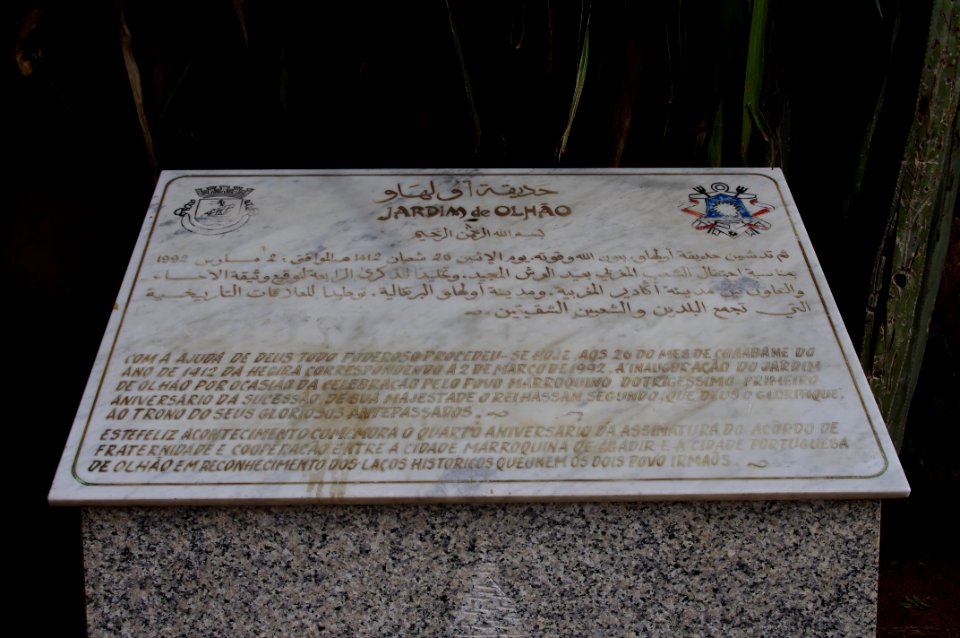 حديقة أولهاو
JARDIM de OLHÃO
بسم الله الرحمن الرحيم
تم تدشين حديقة أولهاو، بعون الله وقوته يوم الاثنين 26 شعبان 1412 هـ الموافق : 2 مارس 1992
بمناسبة احتفال الشعب المغربي بعيد العرش المجيد، وتخليدا للذكرى الرابعة لتوقيع وثيقة الاخاء
والتعاون بين مدينة أكادير المغربية، ومدينة أولهاو البرتغالية، توطيدا للعلاقات التاريخية
التي تجمع البلدين والشعبين الشقيقين.
COM A AJUDA DE DEUS TODO PODEROSO PROCEDEU-SE HOJE, AOS 26 DO MES DE CHAABANE DO
ANO DE 1412 DA HEGIRA CORRESPONDENDO A 2 DE MARCO DE 1992, A INAUGURAÇÃO DO JARDIM
DE OLHÃO POR OCASIÃO DA CELEBRAÇÃO PELO POVO MARROQUINO DO TRIGESSIMO PRIMEIRO
ANIVERSÁRIO DA SUCESSÃO DE SUA MAJESTADE O REI HASSAN SEGUNDO, QUE DEUS O GLORIFIQUE,
AO TRONO DO SEUS GLORIOSOS ANTEPASSADOS.
ESTE FELIZ ACONTECIMENTO COMEMORA O QUARTO ANIVERSÁRIO DA ASSINATURA DO ACORDO DE
FRATERNIDADE E COOPERAÇÃO ENTRE A CIDADE MARROQUINA DE AGADIR E A CIDADE PORTUGUESA
DE OLHÃO EM RECONHECIMENTO DOS LAÇOS HISTÓRICOS QUE UNEM OS DOIS POVO IRMAÕS.